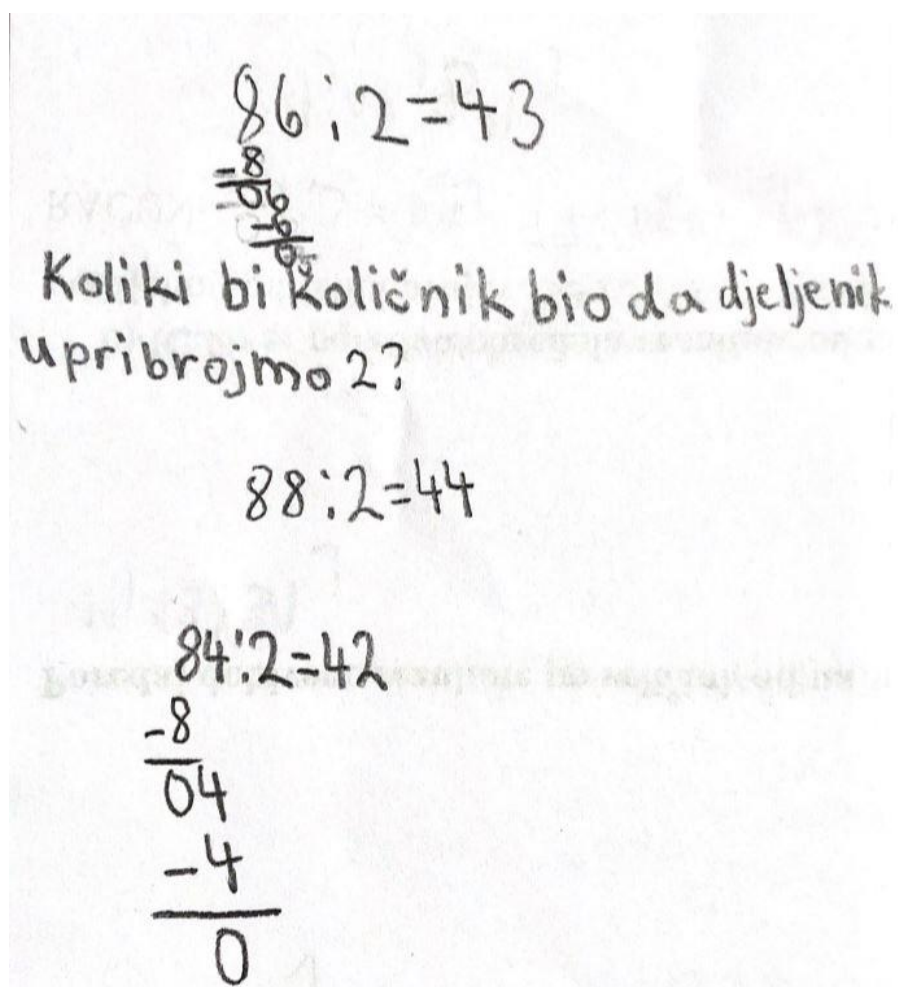 86:2=43
-8
06
-6
0
Koliki bi količnik bio da djeljenik
u pribrojmo 2?
88:2=44
84:2=42
-8
04
-4
0